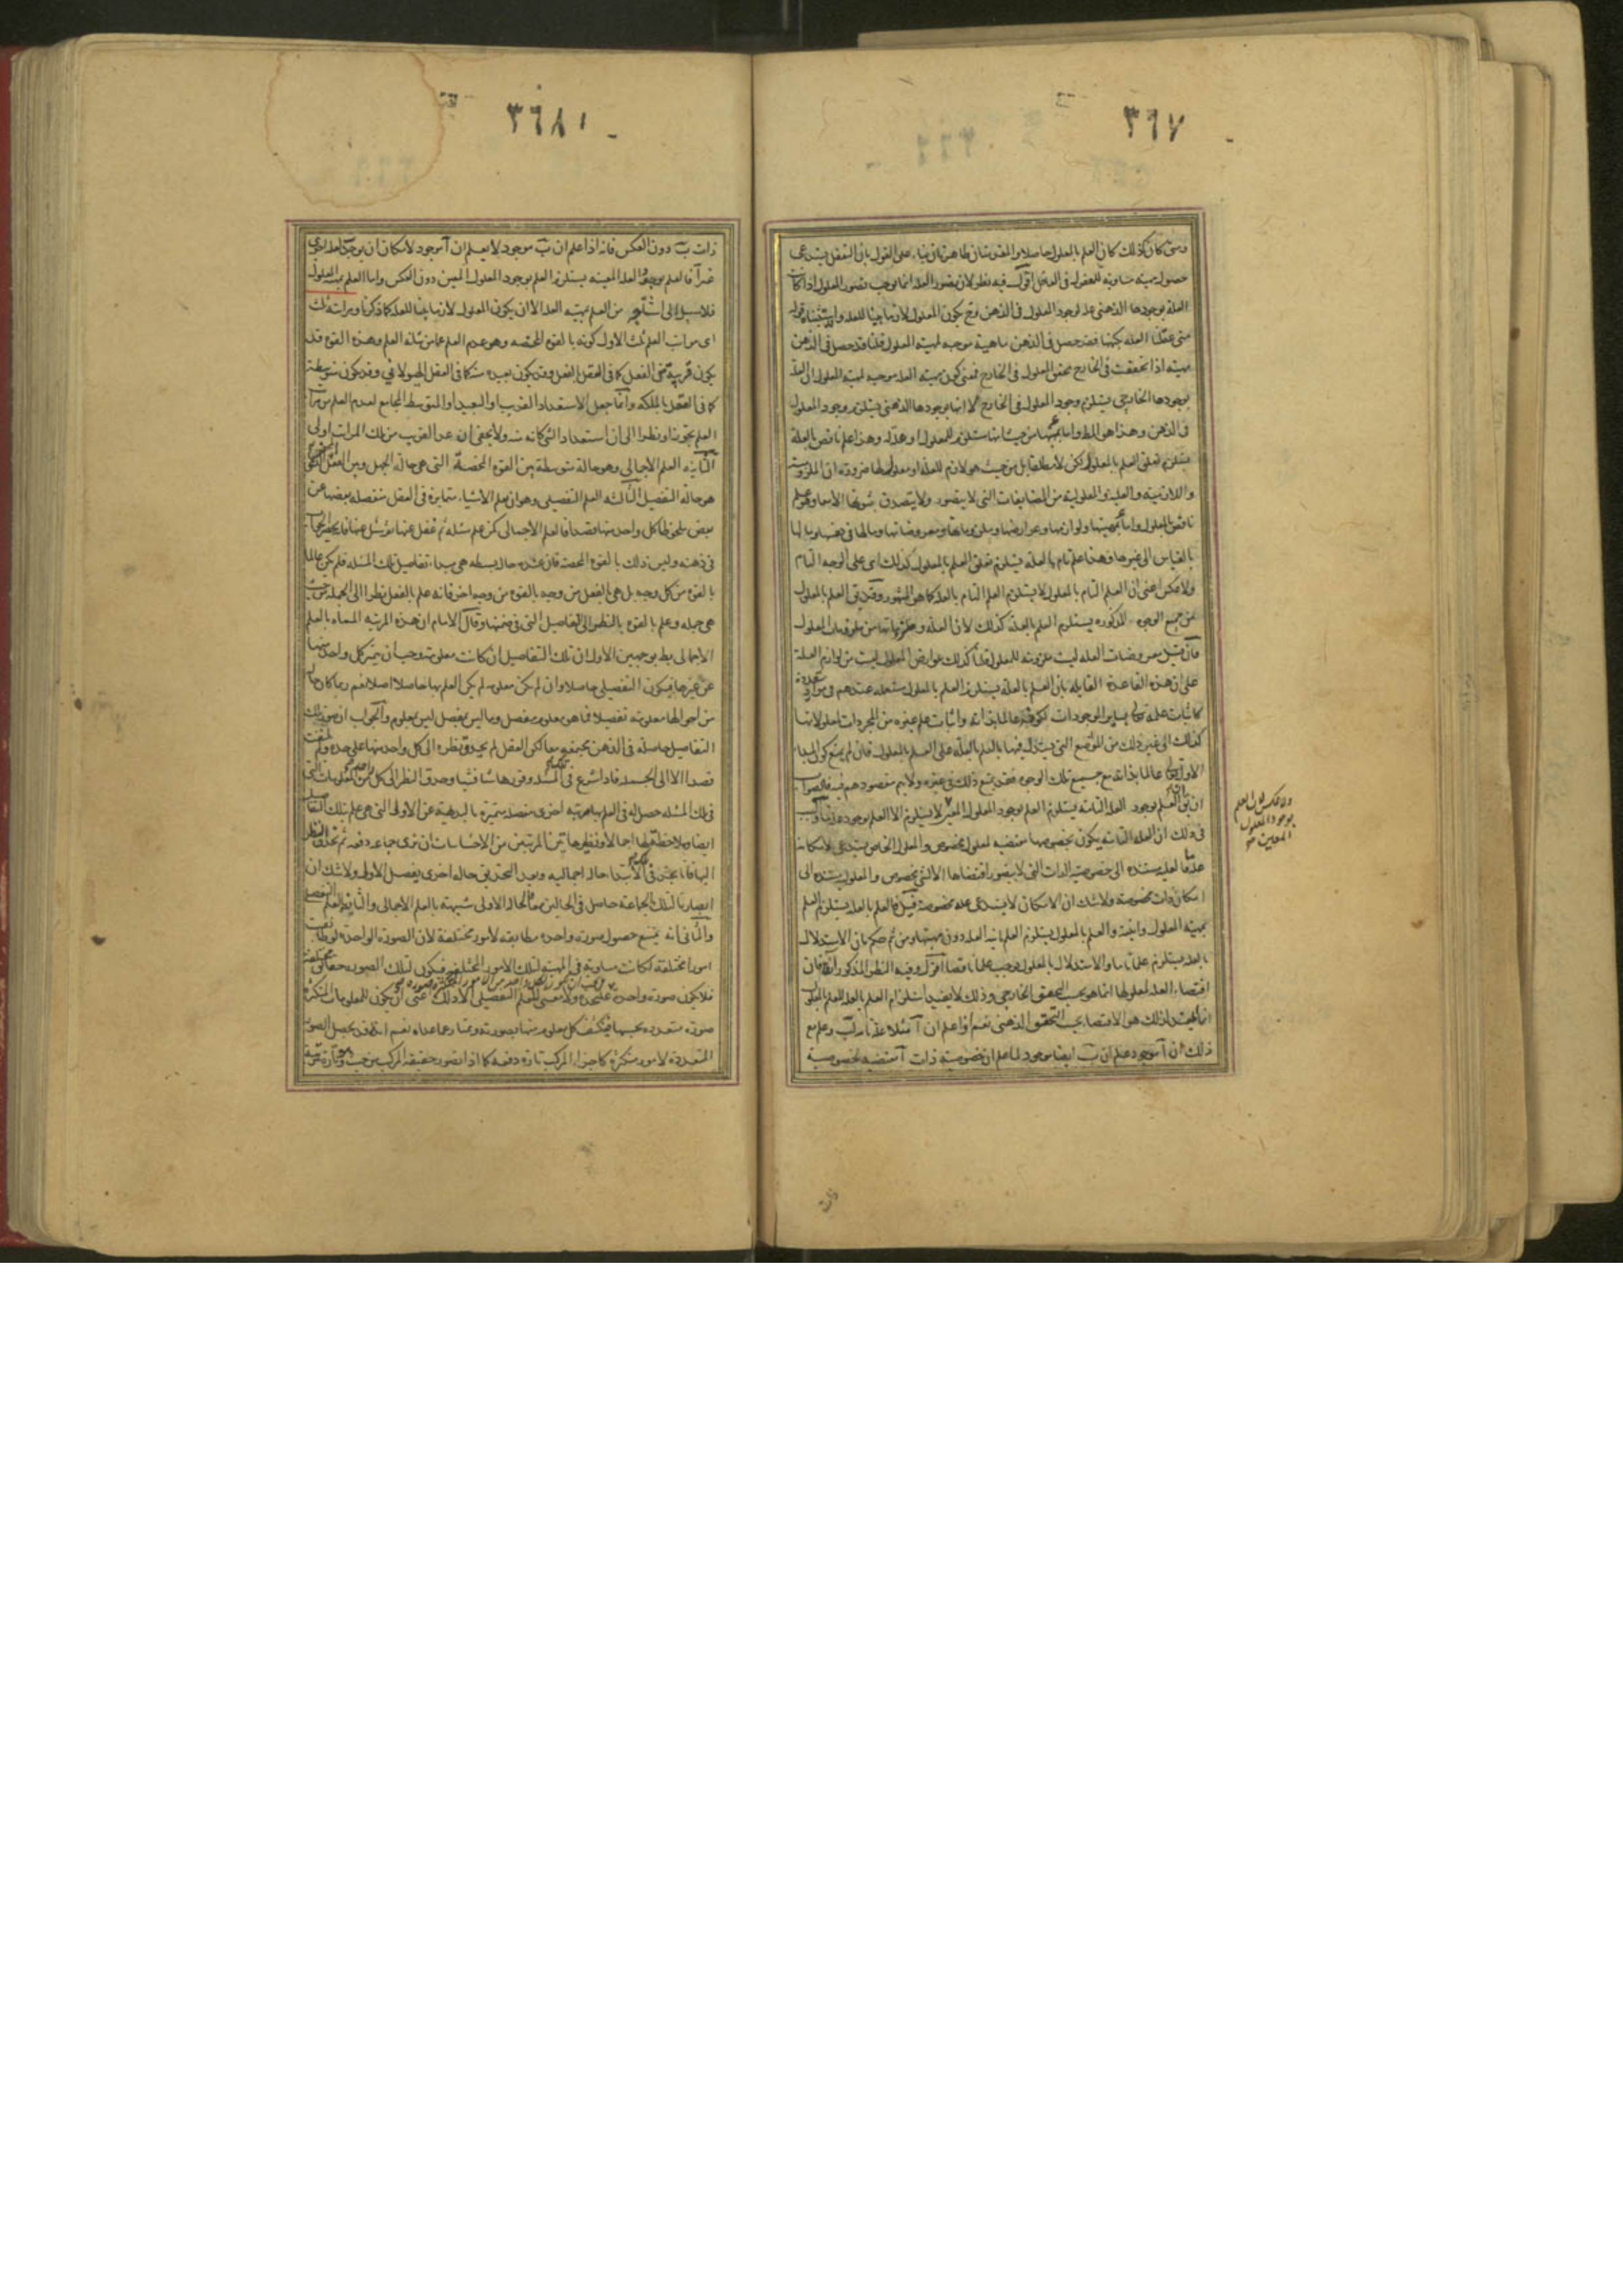 ٣٦٧
ومتى كان كذلك كان العلم بالمعلول حاصلا والمقدمتان ظاهرتان بناء على القول بان التعقل يستدعى
حصول مهية مساوية للمعقول فى العاقل اقول فيه نظر لان تصور العلة انما يوجب تصور المعلول اذا كانت
العلة بوجودها الذهنى علة لوجود المعلول فى الذهن وح يكون المعلول لازما بينا للعلة
متى عقلنا العلة بكنهها فقد حصل فى الذهن ماهية موجبة لمهية المعلول قلنا قد حصل فى الذهن
مهية اذا تحققت فى الخارج تحقق المعلول فى الخارج فمعنى كون مهية العلة موجبة لمهية المعلول ان العلة
بوجودها الخارجى يستلزم وجود المعلول فى الخارج لا انها بوجودها الذهنى يستلزم وجود المعلول
فى الذهن وهذا هو المط واما بمهيتها من حيث انها مستلزم للمعلول وهذا علم ناقص بالعلة
يستلزم تعلق العلم بالمعلول لكن لا مطلقا بل من حيث هو لازم للعلة او معلول لها ضرورة ان الملزومية
واللازمية والعلية والمعلولية من المضايفات التى لا يتصور ولا يتصدق ثبوتها الا معا وهو علم
ناقص بالمعلول واما بمهيتها ولوازمها وعوارضها وملزوماتها ومعروضاتها ومالها فى نفسها ومالها
بالقياس الى غيرها فهذا علم تام بالعلة فيستلزم تعلق العلم بالمعلول كذلك اى على الوجه التام
ولا عكس اعنى ان العلم التام بالمعلول لا يستلزم العلم التام بالعلة كما هو المشهور وقد يق العلم بالمعلول
من جميع الوجوه المذكورة يستلزم العلم بالعلة كذلك لان العلة وملزوماتها من ملزومات المعلول
فان قيل معروضات العلة ليست ملزومة للمعلول قلنا كذلك عوارض المعلول ليست من لوازم العلة
على ان هذه القاعدة القايلة بان العلم بالعلة يستلزم العلم بالمعلول مستعملة عندهم فى موارد متعددة
كاثبات علمه تعالى بساير الموجودات لكونه عالما بذاته واثبات علم غيره من المجردات لمعلولاتها
كذلك الى غير ذلك من المواضع التى يستدل فيها بالعلم بالعلة على العلم بالمعلول فان لم يمنع كون المبدا
الاول تعالى عالما بذاته مع جميع تلك الوجوه فقد يمنع ذلك فى غيره ولا يتم مقصودهم فيه فالصواب
ان يق العلم بوجود العلة التامة يستلزم العلم بوجود المعلول المعين لا يستلزم الا العلم بوجود علة ما والسبب
فى ذلك ان العلة التامة يكون بخصوصها مقتضية لمعلول مخصوص والمعلول الخاص يستدعى لامكانه
علة ما فالعلة مستندة الى خصوصية الذات التى لا يتصور اقتضاها الا لشئ مخصوص والمعلول مستند الى
امكان ذات مخصوصة ولا شك ان الامكان لا يستدعى علة مخصوصة قيل فالعلم بالعلة يستلزم العلم
بمهية المعلول وانيته والعلم بالمعلول يستلزم العلم بانية العلة دون مهيتها ومن ثم حكم بان الاستدلال
بالعلة يستلزم علما تاما والاستدلال بالمعلول يوجب علما ناقصا اقول وفيه النظر المذكور آنفا فان
اقتضاء العلة لمعلولها انما هو بحسب التحقق الخارجى وذلك لا يفيد استلزام العلم بالعلة للعلم بالمعلول
انما المفيد لذلك هو الاقتضاء بحسب التحقق الذهنى نعم اذا علم ان آ مثلا علة تامة لب وعلم مع
ذلك ان آ موجود علم ان ب ايضا موجود لما علم ان خصوصية ذات آ مقتضية لخصوصية
ولا عكس لان العلم
بوجود المعلول
المعين صح
ذات
٣٦٨١
ذات ب دون العكس فانه اذا علم ان ب موجود لا يعلم ان آ موجود لامكان ان يوجد بعلة اخرى
غير آ فالعلم بوجود العلة المعينة يستلزم العلم بوجود المعلول المعين دون العكس واما العلم بمهية المعلول
فلا سبيل الى استلزامه من العلم بمهية العلة الا ان يكون المعلول لازما بينا للعلة كما ذكرنا ومراتبه ثلث
اى مراتب العلم ثلث الاول كونه بالقوة المحضة وهو عدم العلم عما من شانه العلم وهذه القوة قد
يكون قريبة من الفعل كما فى العقل بالفعل وقد يكون بعيدة منه كما فى العقل الهيولانى وقد يكون متوسطة
كما فى العقل بالملكة وانما جعل الاستعداد القريب او البعيد او المتوسط المجامع لعدم العلم من مراتب
العلم تجوزا ونظرا الى ان استعداد الشئ كانه منه ولا يخفى ان عد القريب من تلك المراتب اولى
الثانية العلم الاجمالى وهو حالة متوسطة بين القوة المحضة التى هى حالة الجهل وبين الفعل المحض الذى
هو حالة التفصيل الثالثة العلم التفصيلى وهو ان يعلم الاشياء متمايزة فى العقل منفصلة بعضها عن
بعض ملحوظا كل واحد منها قصدا فالعلم الاجمالى كمن علم مسئلة ثم غفل عنها ثم سئل عنها فانه يحضر الجواب
فى ذهنه وليس ذلك بالقوة المحضة فان عنده حالة بسيطة هى مبدا تفاصيل تلك المسئلة فلم يكن عالما
بالقوة من كل وجه بل هى بالفعل من وجه بالقوة من وجه اخر فانه علم بالفعل نظرا الى الجملة من حيث
هى جملة وعلم بالقوة بالنظر الى التفاصيل التى فى ضمنها وقال الامام ان هذه المرتبة المسماة بالعلم
الاجمالى بط بوجهين الاول ان تلك التفاصيل ان كانت معلومة وجب ان يتميز كل واحد منها
عن غيرها فيكون التفصيلى حاصلا وان لم يكن معلومة لم يكن العلم بها حاصلا اصلا نعم ربما كان حالة
من احوالها معلومة تفصيلا فما هو معلوم مفصل وما ليس بمفصل ليس بمعلوم والجواب ان صور تلك
التفاصيل حاصلة فى الذهن مجتمعة معا لكن العقل لم يحدق نظره الى كل واحد منها على حدة ولم يلتفت
قصدا الا الى الجملة فاذا شرع فى المسئلة وقررها شيئا فشيئا وحدق النظر الى كل واحد من المعلومات التى
فى تلك المسئلة حصل له فى العلم بها مرتبة اخرى مفصلة متميزة بالبديهة عن الاولى التى هى علم بتلك التفاصيل
ايضا وملاحظة لها اجمالا ونظير هاتين المرتبتين من الاحساسات ان نرى جماعة دفعة ثم نحدق النظر
اليها فانا نجد فى الابتداء حالة اجمالية وبعد التحديق حالة اخرى يفصل الاولى ولا شك ان
ابصارنا لتلك الجماعة حاصل فى الحالين معا فالحالة الاولى شبيهة بالعلم الاجمالى والثانية بالعلم التفصيلى
والثانى انه يمتنع حصول صورة واحدة مطابقة لامور مختلفة لان الصورة الواحدة لو طابقت
امورا مختلفة لكانت مساوية فى المهية لتلك الامور المختلفة فيكون لتلك الصورة حقايق مختلفة
فلا يكون صورة واحدة على حدة ولا معنى للعلم التفصيلى الا ذلك اعنى ان يكون للمعلومات المتكثرة
صورة متعددة بحسبها فينكشف كل معلوم منها بصورته ويمتاز عما عداه نعم انه قد يحصل الصور
المتعددة لامور متكثرة كاجزاء المركب تارة دفعة كما اذا تصور حقيقة المركب من حيث هو وتارة مرتبة